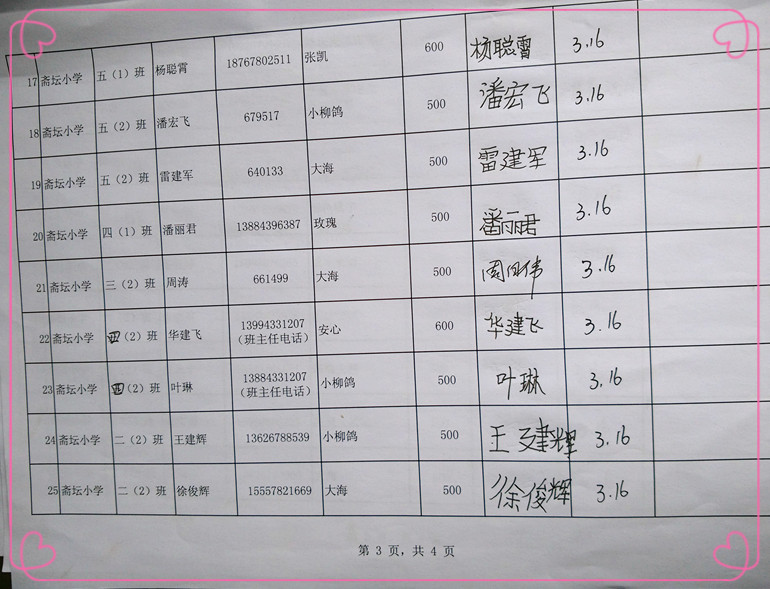 17 斋坛小学 五（1）班 杨聪霄 18767802511 张凯 600 杨聪霄 3.16
18 斋坛小学 五（2）班 潘宏飞 679517 小柳鸽 500 潘宏飞 3.16
19 斋坛小学 五（2）班 雷建军 640133 大海 500 雷建军 3.16
20 斋坛小学 四（1）班 潘丽君 13884396387 玫瑰 500 潘丽君 3.16
21 斋坛小学 三（2）班 周涛 661499 大海 500 3.16
22 斋坛小学 四（2）班 华建飞 13994331207 安心 600 华建飞 3.16
（班主任电话）
23 斋坛小学 四（2）班 叶琳 13884331207 小柳鸽 500 叶琳 3.16
（班主任电话）
24 斋坛小学 二（2）班 王建辉 13626788539 小柳鸽 500 王建辉 3.16
25 斋坛小学 二（2）班 徐俊辉 15557821669 大海 500 徐俊辉 3.16
第 3 页，共 4 页